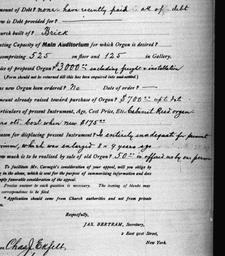 mount of Debt? none have recently paid all of debt
ow is Debt provided for?
urch built of? Brick
ting Capacity of Main Auditorium for which Organ is desired?
omprising 525 on floor and 125 in Gallery.
ice of proposed Organ? $3000.00 including freight & installation
(Form should not be returned till this has been inquired into and stated.)
as new Organ been ordered? No Date of order?
mount already raised toward purchase of Organ? $700.00
rticulars of present Instrument, Age, Cost Price, Etc. Cabinet Reed organ
Cost when new $175.00
eason for displacing present Instrument? Is entirely inadequate for present
which was enlarged 2 yrs ago
ow much is to be realized by sale of old Organ? $50.00 is offered us by one person
To facilitate Mr. Carnegie's consideration of your appeal, will you oblige by
g in the above, which is used for the purpose of summarizing data for his consideration
Precise answer to each question is necessary. The leaving of blanks may
correspondence to be filed.
* Application should come from Church authorities and not from private
Respectfully,
JAS. BERTRAM, Secretary,
2 East 91st Street,
New York.
Chas. J.